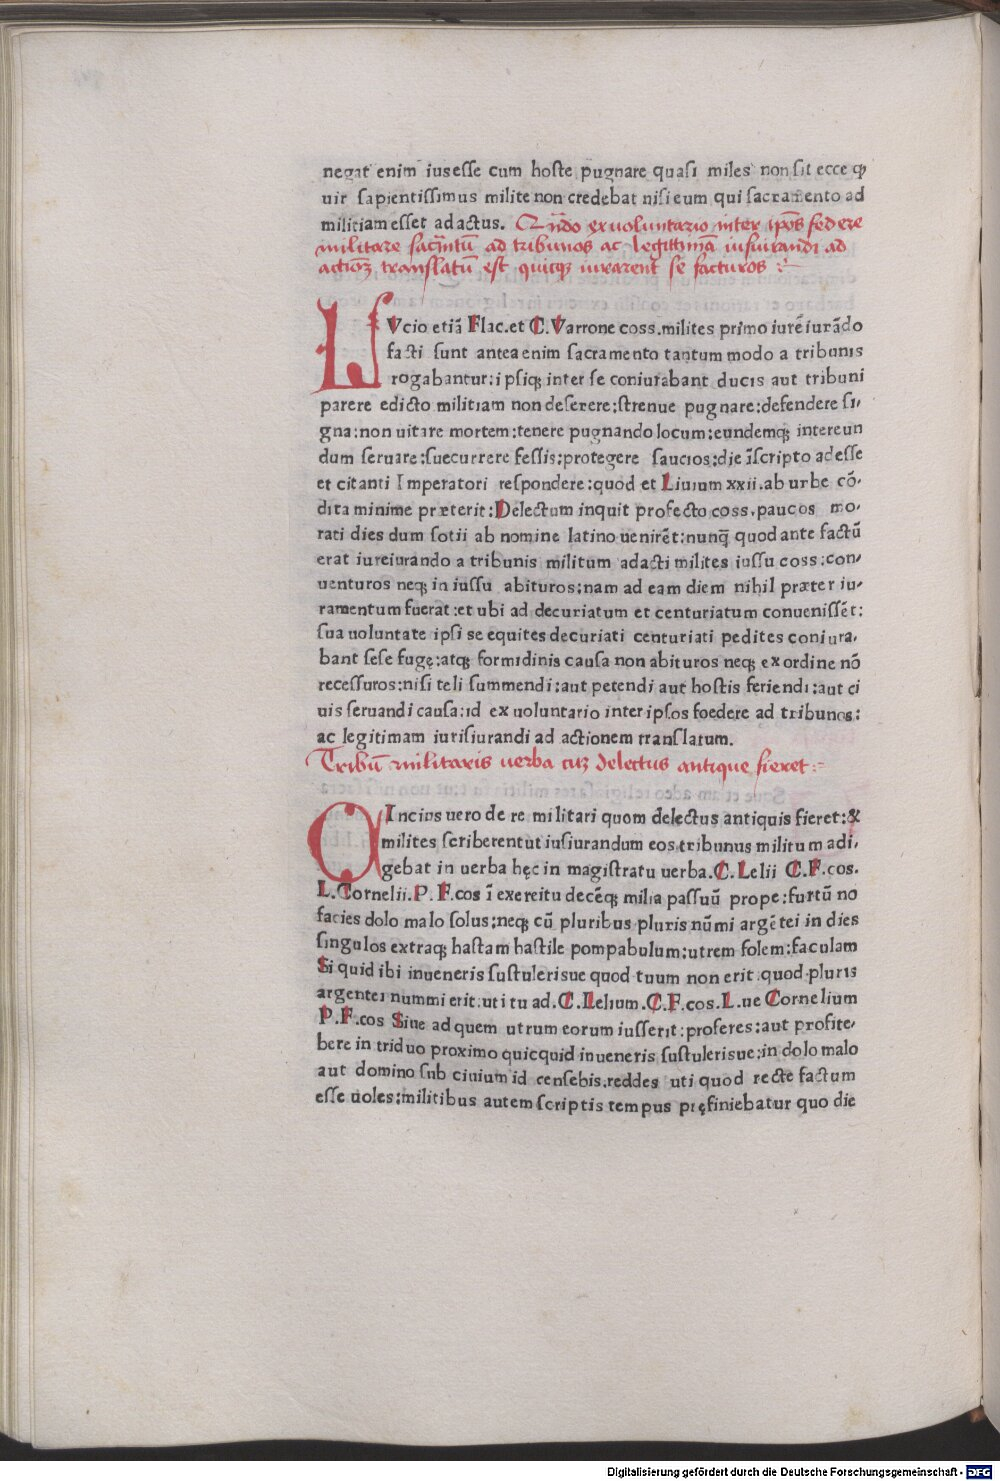 negat enim iusesse cum hoste pugnare quasi miles non sit ecce ꝙ
uir sapientissimus milite non credebat nisi eum qui sacramento ad
militiam esset adactus. Qñdo ex voluntario inter ip̄os federe
militare sacr̄mtū ad tribunos ac legittimā iusiurandi ad
actionē translatū est quicqꝫ iurarent se facturos :~
LVcio etiā Flac. et C. Varrone coss. milites primo iurēiurādo
facti sunt antea enim sacramento tantum modo a tribunis
rogabantur: ipsiqꝫ inter se coniurabant ducis aut tribuni
parere edicto militiam non deserere: strenue pugnare: defendere si-
gna: non uitare mortem: tenere pugnando locum: eundemqꝫ intereun
dum seruare: succurrere fessis: protegere saucios: die īscripto adesse
et citanti Imperatori respondere: quod et Liuium xxii. ab urbe cō-
dita minime præterit: Delectum inquit profecto coss. paucos mo-
rati dies dum sotii ab nomine latino uenirēt: nunq̄ quod ante factū
erat iureiurando a tribunis militum adacti milites iussu coss: con-
uenturos neqꝫ in iussu abituros: nam ad eam diem nihil præter iu-
ramentum fuerat: et ubi ad decuriatum et centuriatum conuenissēt:
sua uoluntate ipsi se equites decuriati centuriati pedites coniura-
bant sese fugę: atqꝫ formidinis causa non abituros neqꝫ ex ordine nō
recessuros: nisi teli summendi: aut petendi aut hostis feriendi: aut ci
uis seruandi causa: id ex uoluntario inter ipsos foedere ad tribunos:
ac legitimam iurisiurandi ad actionem translatum.
Tribū militaris uerba cuꝫ delectus antique fieret :~
CIncius uero de re militari quom delectus antiquis fieret: &
milites scriberentut iusiurandum eos tribunus militum adi-
gebat in uerba hęc in magistratu uerba. C. Lelii C. F. cos.
L. Cornelii. P. F. cos ī exercitu decēqꝫ milia passuū prope: furtū no
facies dolo malo solus: neqꝫ cū pluribus pluris nūmi argētei in dies
singulos extraqꝫ hastam hastile pompabulum: utrem folem: faculam
Si quid ibi inueneris sustulerisue quod tuum non erit: quod pluris
argentei nummi erit: uti tu ad. C. Lelium. C. F. cos. L. ue Cornelium
P. F. cos Siue ad quem utrum eorum iusserit: proferes: aut profite-
bere in triduo proximo quicquid inueneris sustulerisue: in dolo malo
aut domino sub ciuium id censebis. reddes uti quod recte factum
esse uoles: militibus autem scriptis tempus pręfiniebatur quo die
Digitalisierung gefördert durch die Deutsche Forschungsgemeinschaft - DFG